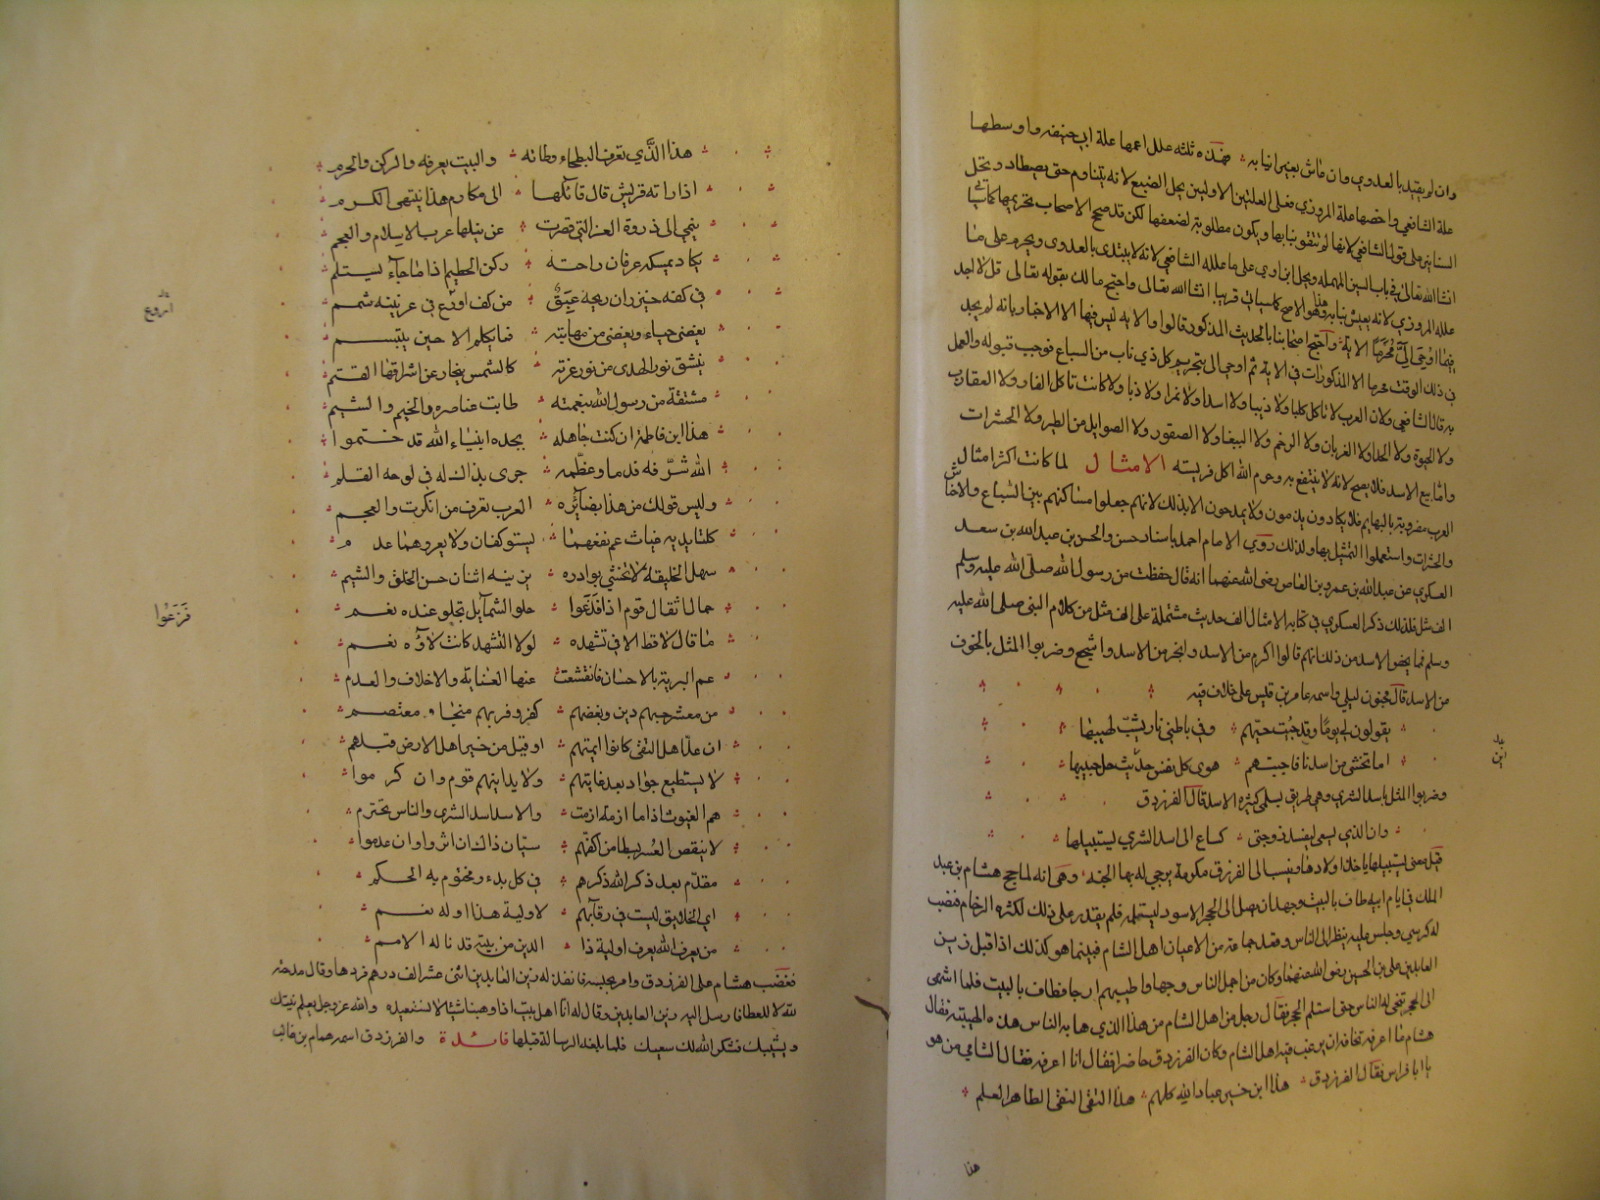 وان لم يبتدئ بالعدوي وان عاش بغير انيابه فهذه ثلثه علل اعمها علة ابي حنيفه واوسطها
علة الشافعي واخصها علة المروزي فعلى العلتين الاوليين يحل الضبع لانه يتناوم حتى يصطاد ويحل
انشا الله تعالى في باب السين المهمله ويحل ابن اوي على ما علله الشافعي لانه لا يبتدئ بالعدوى ويحرم على ما
علله المروزي لانه يعيش بنابه وهذا هو الاصح كما سياتي قريبا انشا الله تعالى واحتج مالك بقوله تعالى قل لا اجد
فيما اوحي الي محرما الاية واحتج اصحابنا بالحديث المذكور قالوا والاية ليس فيها الا الاخبار بانه لم يجد
في ذلك الوقت محرما الا المذكورات في الاية ثم اوحي اليه بتحريم كل ذي ناب من السباع فوجب قبوله والعمل
به قال الشافعي ولان العرب لا تاكل كلبا ولا ذيبا ولا اسدا ولا نمرا ولا دبا ولا كانت تاكل الفار ولا العقارب
ولا الحيوة ولا الحدا ولا الغربان ولا الرخم ولا البغا ولا الصقور ولا الصوايل من الطير ولا الحشرات
واما بيع الاسد فلا يصح لانه لا ينتفع به وحرم الله اكل فريسته الامثال لما كانت اكثر امثال
العرب مضروبة بالبهايم فلا يكادون يذمون ولا يمدحون الا بذلك لانهم جعلوا مساكنهم بين السباع والاحناش
والحشرات واستعملوا التمثيل بها ولذلك روي الامام احمد باسناد حسن والحسن بن عبد الله بن سعد
العسكري عن عبد الله بن عمرو بن العاص رضى الله عنهما انه قال حفظت من رسول الله صلى الله عليه وسلم
الف مثل فلذلك ذكر العسكري في كتابه الامثال الف حديث مشتملة على الف مثل من كلام النبي صلى الله عليه
وسلم فما يخص الاسد من ذلك انهم قالوا اكرم من الاسد وابخر من الاسد واشجع وضربوا المثل بالخوف
من الاسد قال مجنون ليلى واسمه عامر بن قيس على خلاف فيه
يقولون لي يوما وقد جئت حيهم وفي باطني نار يشب لهيبها
اما تخشى من اسدنا فاجبتهم هوى كل نفس حيث حل حبيبها
اين
وضربوا المثل باسد الشرى وهي طريق بسلمى كثيرة الاسد قال الفرزدق
وان الذي يسعى ليفسد زوجتي كساع الى اسد الشري يستبيلها
قيل معنى يستبيلها ياخذ اولادها وينسب الى الفرزدق مكرمة يرجى له بها الجنه وهي انه لما حج هشام بن عبد
الملك في ايام ابيه طاف بالبيت وجهد ان يصل الى الحجر الاسود ليستلمه فلم يقدر على ذلك لكثرة الزحام فنصب
له كرسي وجلس عليه ينظر الى الناس وقعد جماعة من الاعيان اهل الشام فبينما هو كذلك اذ اقبل زين
العابدين على بن الحسين رضى الله عنهما وكان من اجمل الناس وجها واطيبهم ارجا فطاف بالبيت فلما انتهى
الى الحجر تنحى له الناس حتى استلم الحجر فقال رجل من اهل الشام من هذا الذي هابه الناس هذه الهيبة فقال
هشام ما اعرفه مخافة ان يرغب فيه اهل الشام وكان الفرزدق حاضرا فقال انا اعرفه فقال الشامي من هو
يا ابا فراس فقال الفرزدق هذا ابن خير عباد الله كلهم هذا التقى النقى الطاهر العلم
هذا
هذا الذي تعرف البطحاء وطاته والبيت يعرفه والركن والحرم
اذا راته قريش قال قائلها الى مكارم هذا ينتهى الكرم
ينمي الى ذروة العز التي قصرت عن نيلها عرب الاسلام والعجم
يكاد يمسكه عرفان راحته ركن الحطيم اذا ما جاء يستلم
في كفه خيزران ريحه عبق من كف اروع في عرنينه شمم
اروع
يغضى حياء ويغضى من مهابته فما يكلم الا حين يبتسم
ينشق نور الهدى من نور غرته كالشمس ينجاب عن اشراقها القتم
مشتقة من رسول الله نبعته طابت عناصره والخيم والشيم
هذا ابن فاطمة ان كنت جاهله بجده انبياء الله قد ختموا
الله شرفه قدما وعظمه جرى بذاك له في لوحه القلم
وليس قولك من هذا بضائره العرب تعرف من انكرت والعجم
كلتا يديه غياث عم نفعهما يستوكفان ولا يعروهما عدم
سهل الخليقة لا تخشى بوادره يزينه اثنان حسن الخلق والشيم
حمال اثقال قوم اذا فدعوا حلو الشمايل تحلو عنده نعم
فزعوا
ما قال لا قط الا في تشهده لولا التشهد كانت لاؤه نعم
عم البرية بالاحسان فانقشعت عنها العناية والاخلاف والعدم
من معشر حبهم دين وبغضهم كفر وقربهم منجا ومعتصم
ان عد اهل التقى كانوا ايمتهم او قيل من خير اهل الارض قيل هم
لا يستطيع جواد بعد غايتهم ولا يدانيهم قوم وان كرموا
هم الغيوث اذا ما ازمة ازمت والاسد اسد الشرى والناس تحترم
لا ينقص العسر بسطا من اكفهم سيان ذلك ان اثروا وان عدموا
مقدم بعد ذكر الله ذكرهم في كل بدء ومختوم به الكلم
اي الخلائق ليست في رقابهم لاولية هذا او له نعم
من يعرف الله يعرف اولية ذا الدين من بيته قد ناله الامم
فغضب هشام على الفرزدق وامر بحبسه فانفذ له زين العابدين اثنى عشر الف درهم فردها وقال مدحته
لله لا للعطا فارسل اليه زين العابدين وقال له انا اهل بيت اذا وهبنا شيئا لا نستعيده والله عز وجل يعلم نيتك
ويثيبك فشكر الله لك سعيك فلما بلغته الرسالة قبلها فائدة والفرزدق اسمه همام بن غالب